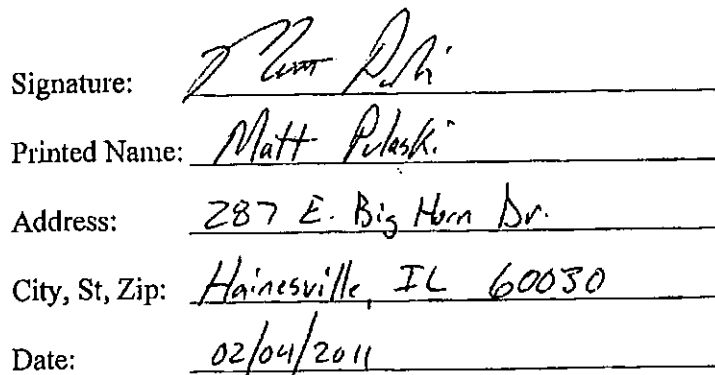 Signature: Matt Pulaski
Printed Name: Matt Pulaski
Address: 287 E. Big Horn Dr.
City, St, Zip: Hainesville, IL 60030
Date: 02/04/2011